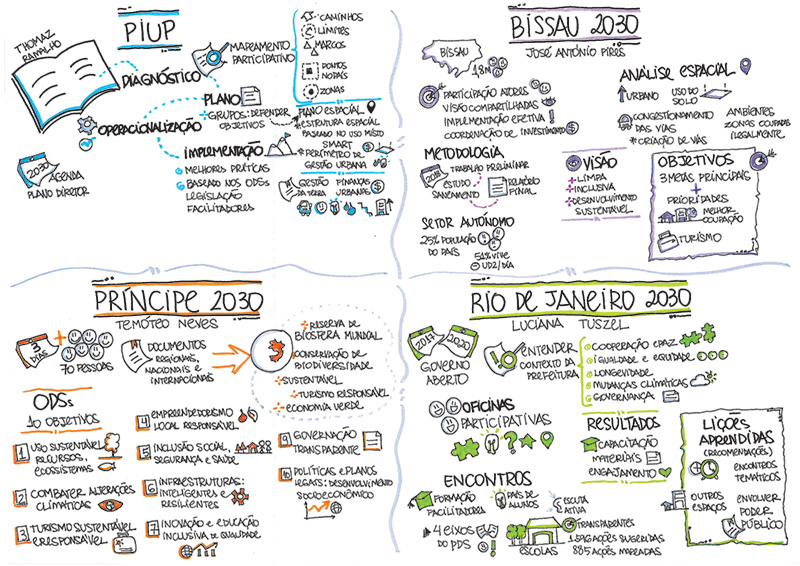 PIUP
THOMAZ
RAMALHO
DIAGNÓSTICO
MAPEAMENTO
PARTICIPATIVO
CAMINHOS
LIMITES
MARCOS
PONTOS
NODAIS
ZONAS
PLANO
GRUPOS: DEFENDER
OBJETIVOS
PLANO ESPACIAL
*ESTRUTURA ESPACIAL
BASEADO NO USO MISTO
SMART
*PERÍMETRO DE
GESTÃO URBANA
OPERACIONALIZAÇÃO
IMPLEMENTAÇÃO
MELHORES PRÁTICAS
BASEADO NOS ODS
LEGISLAÇÃO
FACILITADORES
GESTÃO
DA TERRA
FINANÇAS
URBANAS
2030
AGENDA
PLANO DIRETOR
BISSAU 2030
JOSÉ ANTÓNIO PIRES
BISSAU
1.8M
PARTICIPAÇÃO ATORES
VISÃO COMPARTILHADAS
IMPLEMENTAÇÃO EFETIVA
COORDENAÇÃO DE INVESTIMENTO
ANÁLISE ESPACIAL
URBANO
USO DO
SOLO
CONGESTIONAMENTO
DAS VIAS
*CRIAÇÃO DE VIAS
AMBIENTES
ZONAS OCUPADAS
ILEGALMENTE
METODOLOGIA
TRABALHO PRELIMINAR
ESTUDO
SANEAMENTO
RELATÓRIO
FINAL
VISÃO
LIMPA
INCLUSIVA
DESENVOLVIMENTO
SUSTENTÁVEL
OBJETIVOS
3 METAS PRINCIPAIS
+
PRIORIDADES
MELHOR
OCUPAÇÃO
TURISMO
SETOR AUTÓNOMO
25% POPULAÇÃO
DO PAÍS
51% VIVE
UD2/DIA
PRÍNCIPE 2030
TEMÓTEO NEVES
3
DIAS
+
70 PESSOAS
DOCUMENTOS
REGIONAIS,
NACIONAIS E
INTERNACIONAIS
RESERVA DE
BIOSFERA MUNDIAL
CONSERVAÇÃO DE
BIODIVERSIDADE
SUSTENTÁVEL
TURISMO RESPONSÁVEL
ECONOMIA VERDE
ODSs
10 OBJETIVOS
1 USO SUSTENTÁVEL
RECURSOS,
ECOSSISTEMAS
2 COMBATER ALTERAÇÕES
CLIMÁTICAS
3 TURISMO SUSTENTÁVEL
E RESPONSÁVEL
4 EMPREENDEDORISMO
LOCAL RESPONSÁVEL
5 INCLUSÃO SOCIAL,
SEGURANÇA E SAÚDE
6 INFRAESTRUTURAS:
INTELIGENTES E
RESILIENTES
7 INOVAÇÃO E EDUCAÇÃO
INCLUSIVA DE QUALIDADE
9 GOVERNAÇÃO
TRANSPARENTE
10 POLÍTICAS E PLANOS
LEGAIS: DESENVOLVIMENTO
SOCIOECONÔMICO
RIO DE JANEIRO 2030
LUCIANA TUSZEL
2017
2020
GOVERNO
ABERTO
ENTENDER
CONTEXTO DA
PREFEITURA
COOPERAÇÃO E PAZ
IGUALDADE E EQUIDADE
LONGEVIDADE
MUDANÇAS CLIMÁTICAS
GOVERNANÇA
OFICINAS
PARTICIPATIVAS
?
RESULTADOS
CAPACITAÇÃO
MATERIAIS
ENGAJAMENTO
LIÇÕES
APRENDIDAS
(RECOMENDAÇÕES)
ENCONTROS
TEMÁTICOS
OUTROS
ESPAÇOS
ENVOLVER
PODER
PÚBLICO
ENCONTROS
FORMAÇÃO
FACILITADORA
PAIS DE
ALUNOS
ESCUTA
ATIVA
4 EIXOS
DO PDS
ESCOLAS
TRANSPARENTES
1.596 AÇÕES SUGERIDAS
885 AÇÕES MAPEADAS